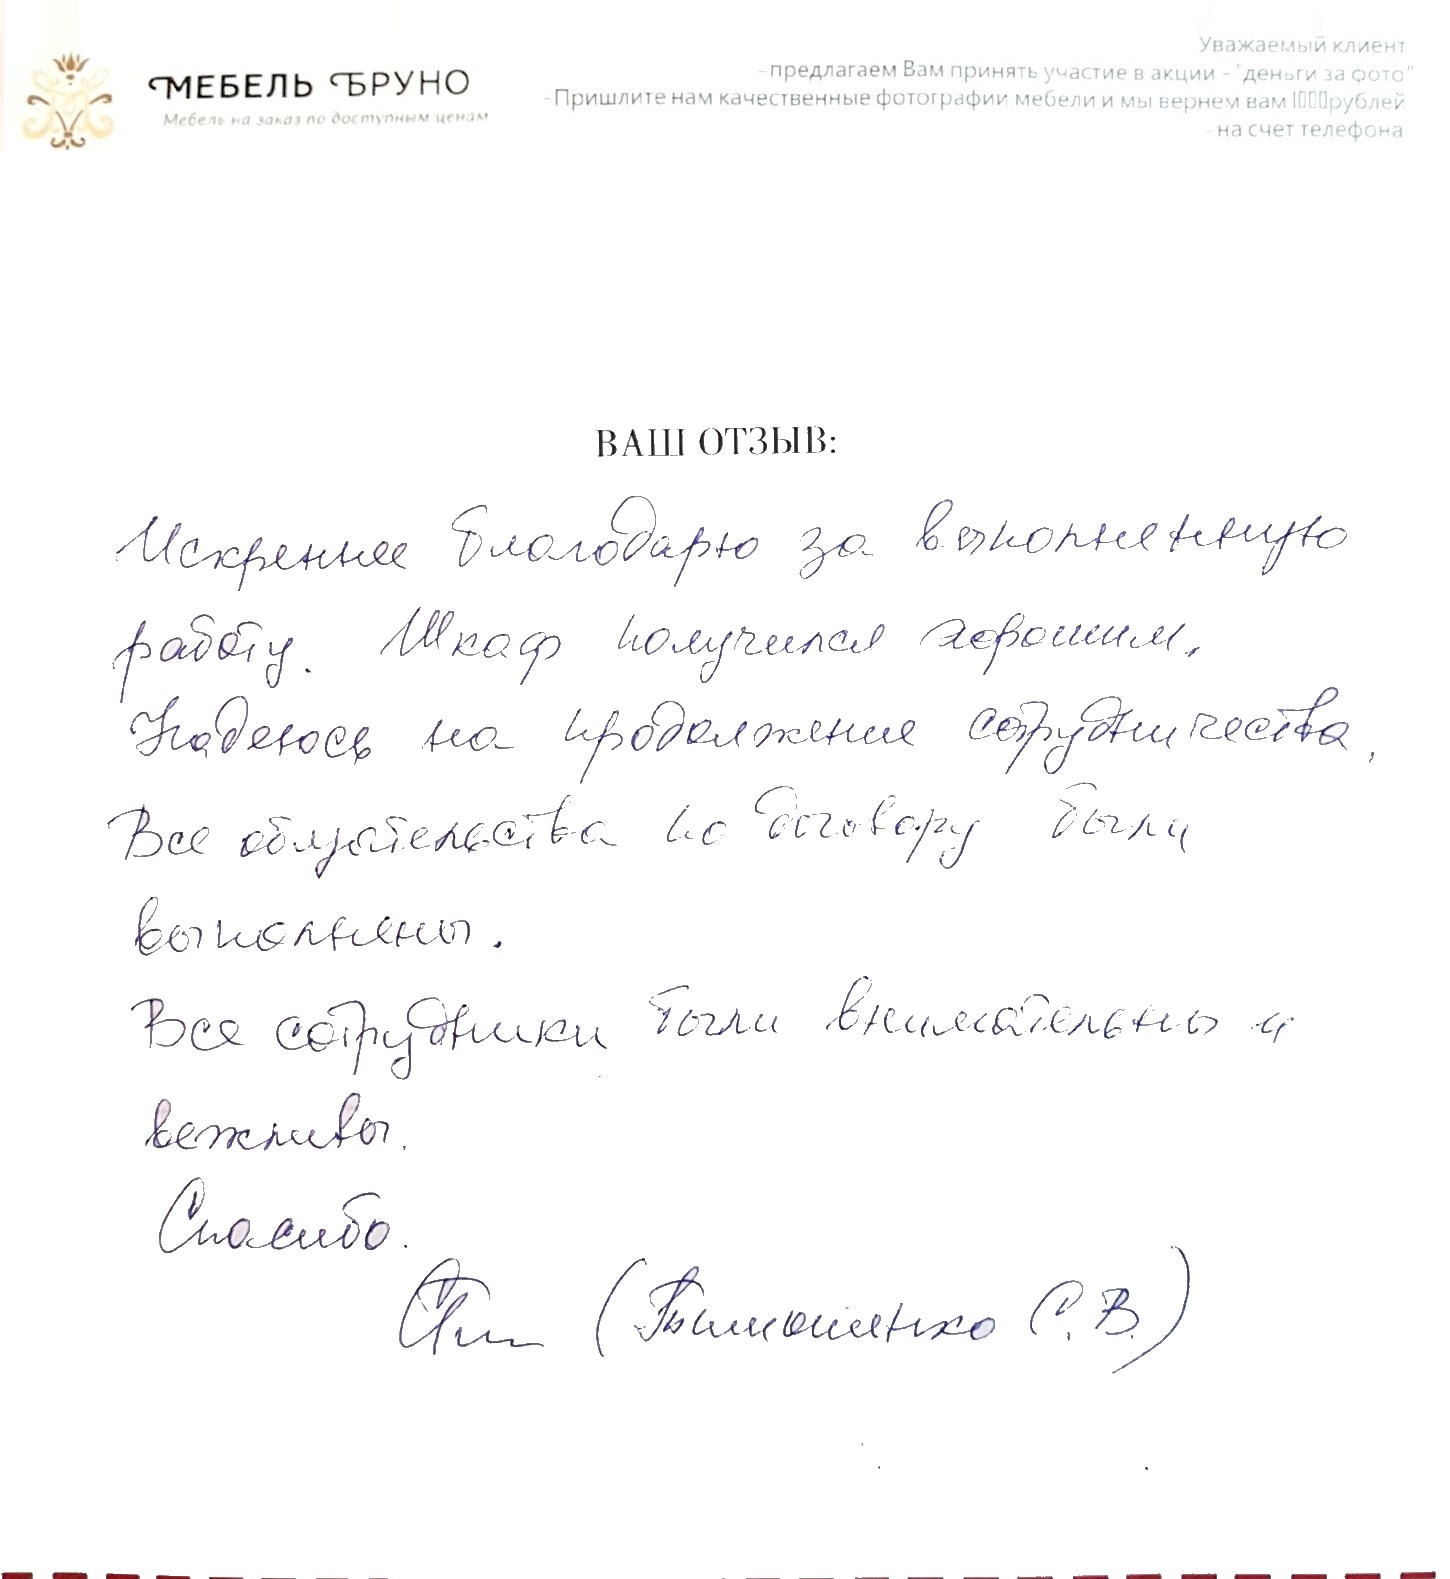 МЕБЕЛЬ БРУНО
Мебель на заказ по доступным ценам
Уважаемый клиент
-предлагаем Вам принять участие в акции - "деньги за фото"
-Пришлите нам качественные фотографии мебели и мы вернем вам 1000рублей
-на счет телефона
ВАШ ОТЗЫВ:
Искренне благодарю за выполненную
работу. Шкаф получился хорошим.
Надеюсь на продолжение сотрудничества.
Все обязательства по договору были
выполнены.
Все сотрудники были внимательны и
вежливы.
Спасибо.
(Тимошенко С.В.)